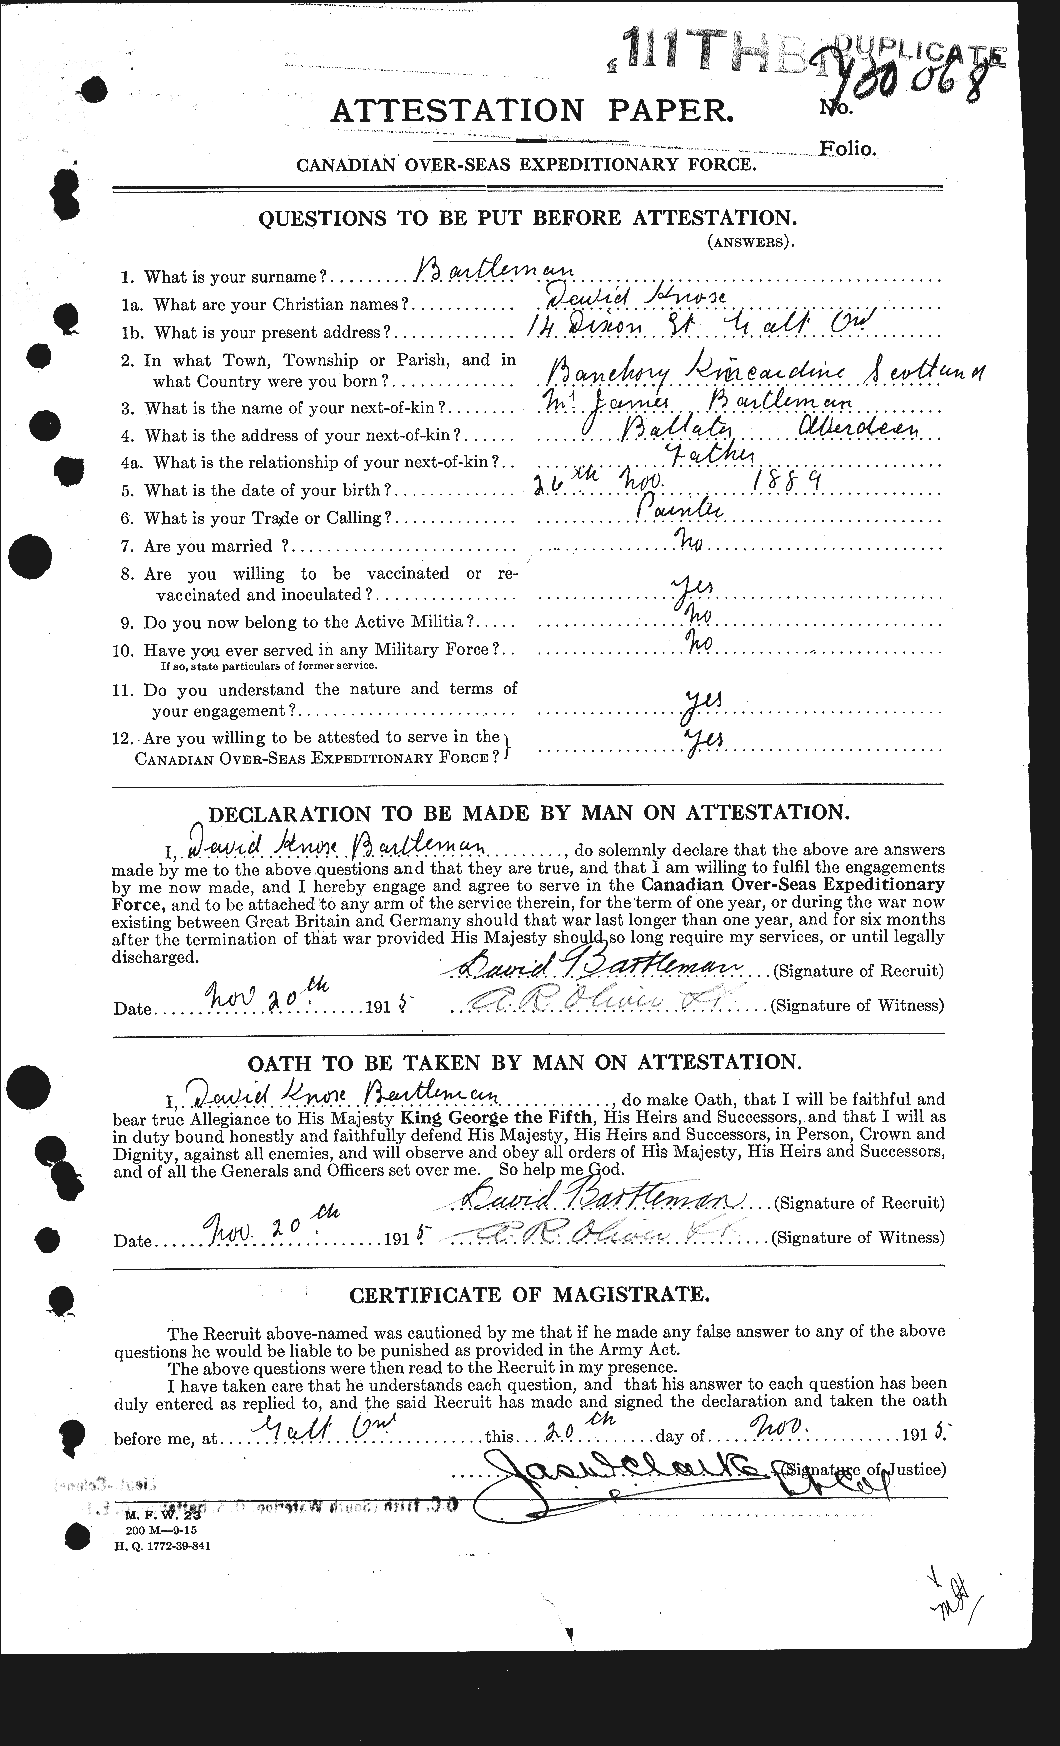 111TH B
DUPLICATE
ATTESTATION PAPER.
No.
Folio.
CANADIAN OVER-SEAS EXPEDITIONARY FORCE.
QUESTIONS TO BE PUT BEFORE ATTESTATION.
(ANSWERS).
1. What is your surname?......... Bartleman
1a. What are your Christian names?............ David Knose
1b. What is your present address?.............. 14 Dixon St Galt Ont
2. In what Town, Township or Parish, and in
what Country were you born?.............. Banchory Kincardine Scotland
3. What is the name of your next-of-kin?........ Mr James Bartleman
4. What is the address of your next-of-kin?...... Ballater Aberdeen
4a. What is the relationship of your next-of-kin?.. Father
5. What is the date of your birth?.............. 26th Nov. 1889
6. What is your Trade or Calling?.............. Painter
7. Are you married ?.......................... No
8. Are you willing to be vaccinated or re-
vaccinated and inoculated?................ Yes
9. Do you now belong to the Active Militia?..... No
10. Have you ever served in any Military Force?.. No
If so, state particulars of former service.
11. Do you understand the nature and terms of
your engagement?......................... Yes
12. Are you willing to be attested to serve in the
CANADIAN OVER-SEAS EXPEDITIONARY FORCE? Yes
DECLARATION TO BE MADE BY MAN ON ATTESTATION.
I, David Knose Bartleman, do solemnly declare that the above are answers
made by me to the above questions and that they are true, and that I am willing to fulfil the engagements
by me now made, and I hereby engage and agree to serve in the Canadian Over-Seas Expeditionary
Force, and to be attached to any arm of the service therein, for the term of one year, or during the war now
existing between Great Britain and Germany should that war last longer than one year, and for six months
after the termination of that war provided His Majesty should so long require my services, or until legally
discharged.
David Bartleman (Signature of Recruit)
Date Nov 20th 1915 A. R. Oliver Lt. (Signature of Witness)
OATH TO BE TAKEN BY MAN ON ATTESTATION.
I, David Knose Bartleman, do make Oath, that I will be faithful and
bear true Allegiance to His Majesty King George the Fifth, His Heirs and Successors, and that I will as
in duty bound honestly and faithfully defend His Majesty, His Heirs and Successors, in Person, Crown and
Dignity, against all enemies, and will observe and obey all orders of His Majesty, His Heirs and Successors,
and of all the Generals and Officers set over me. So help me God.
David Bartleman (Signature of Recruit)
Date Nov. 20th 1915 A. R. Oliver Lt. (Signature of Witness)
CERTIFICATE OF MAGISTRATE.
The Recruit above-named was cautioned by me that if he made any false answer to any of the above
questions he would be liable to be punished as provided in the Army Act.
The above questions were then read to the Recruit in my presence.
I have taken care that he understands each question, and that his answer to each question has been
duly entered as replied to, and the said Recruit has made and signed the declaration and taken the oath
before me, at Galt Ont this 20th day of Nov. 1915.
Jas W Clarke Lt Col (Signature of Justice)
M. F. W. 23
200 M—9-15
H. Q. 1772-39-841